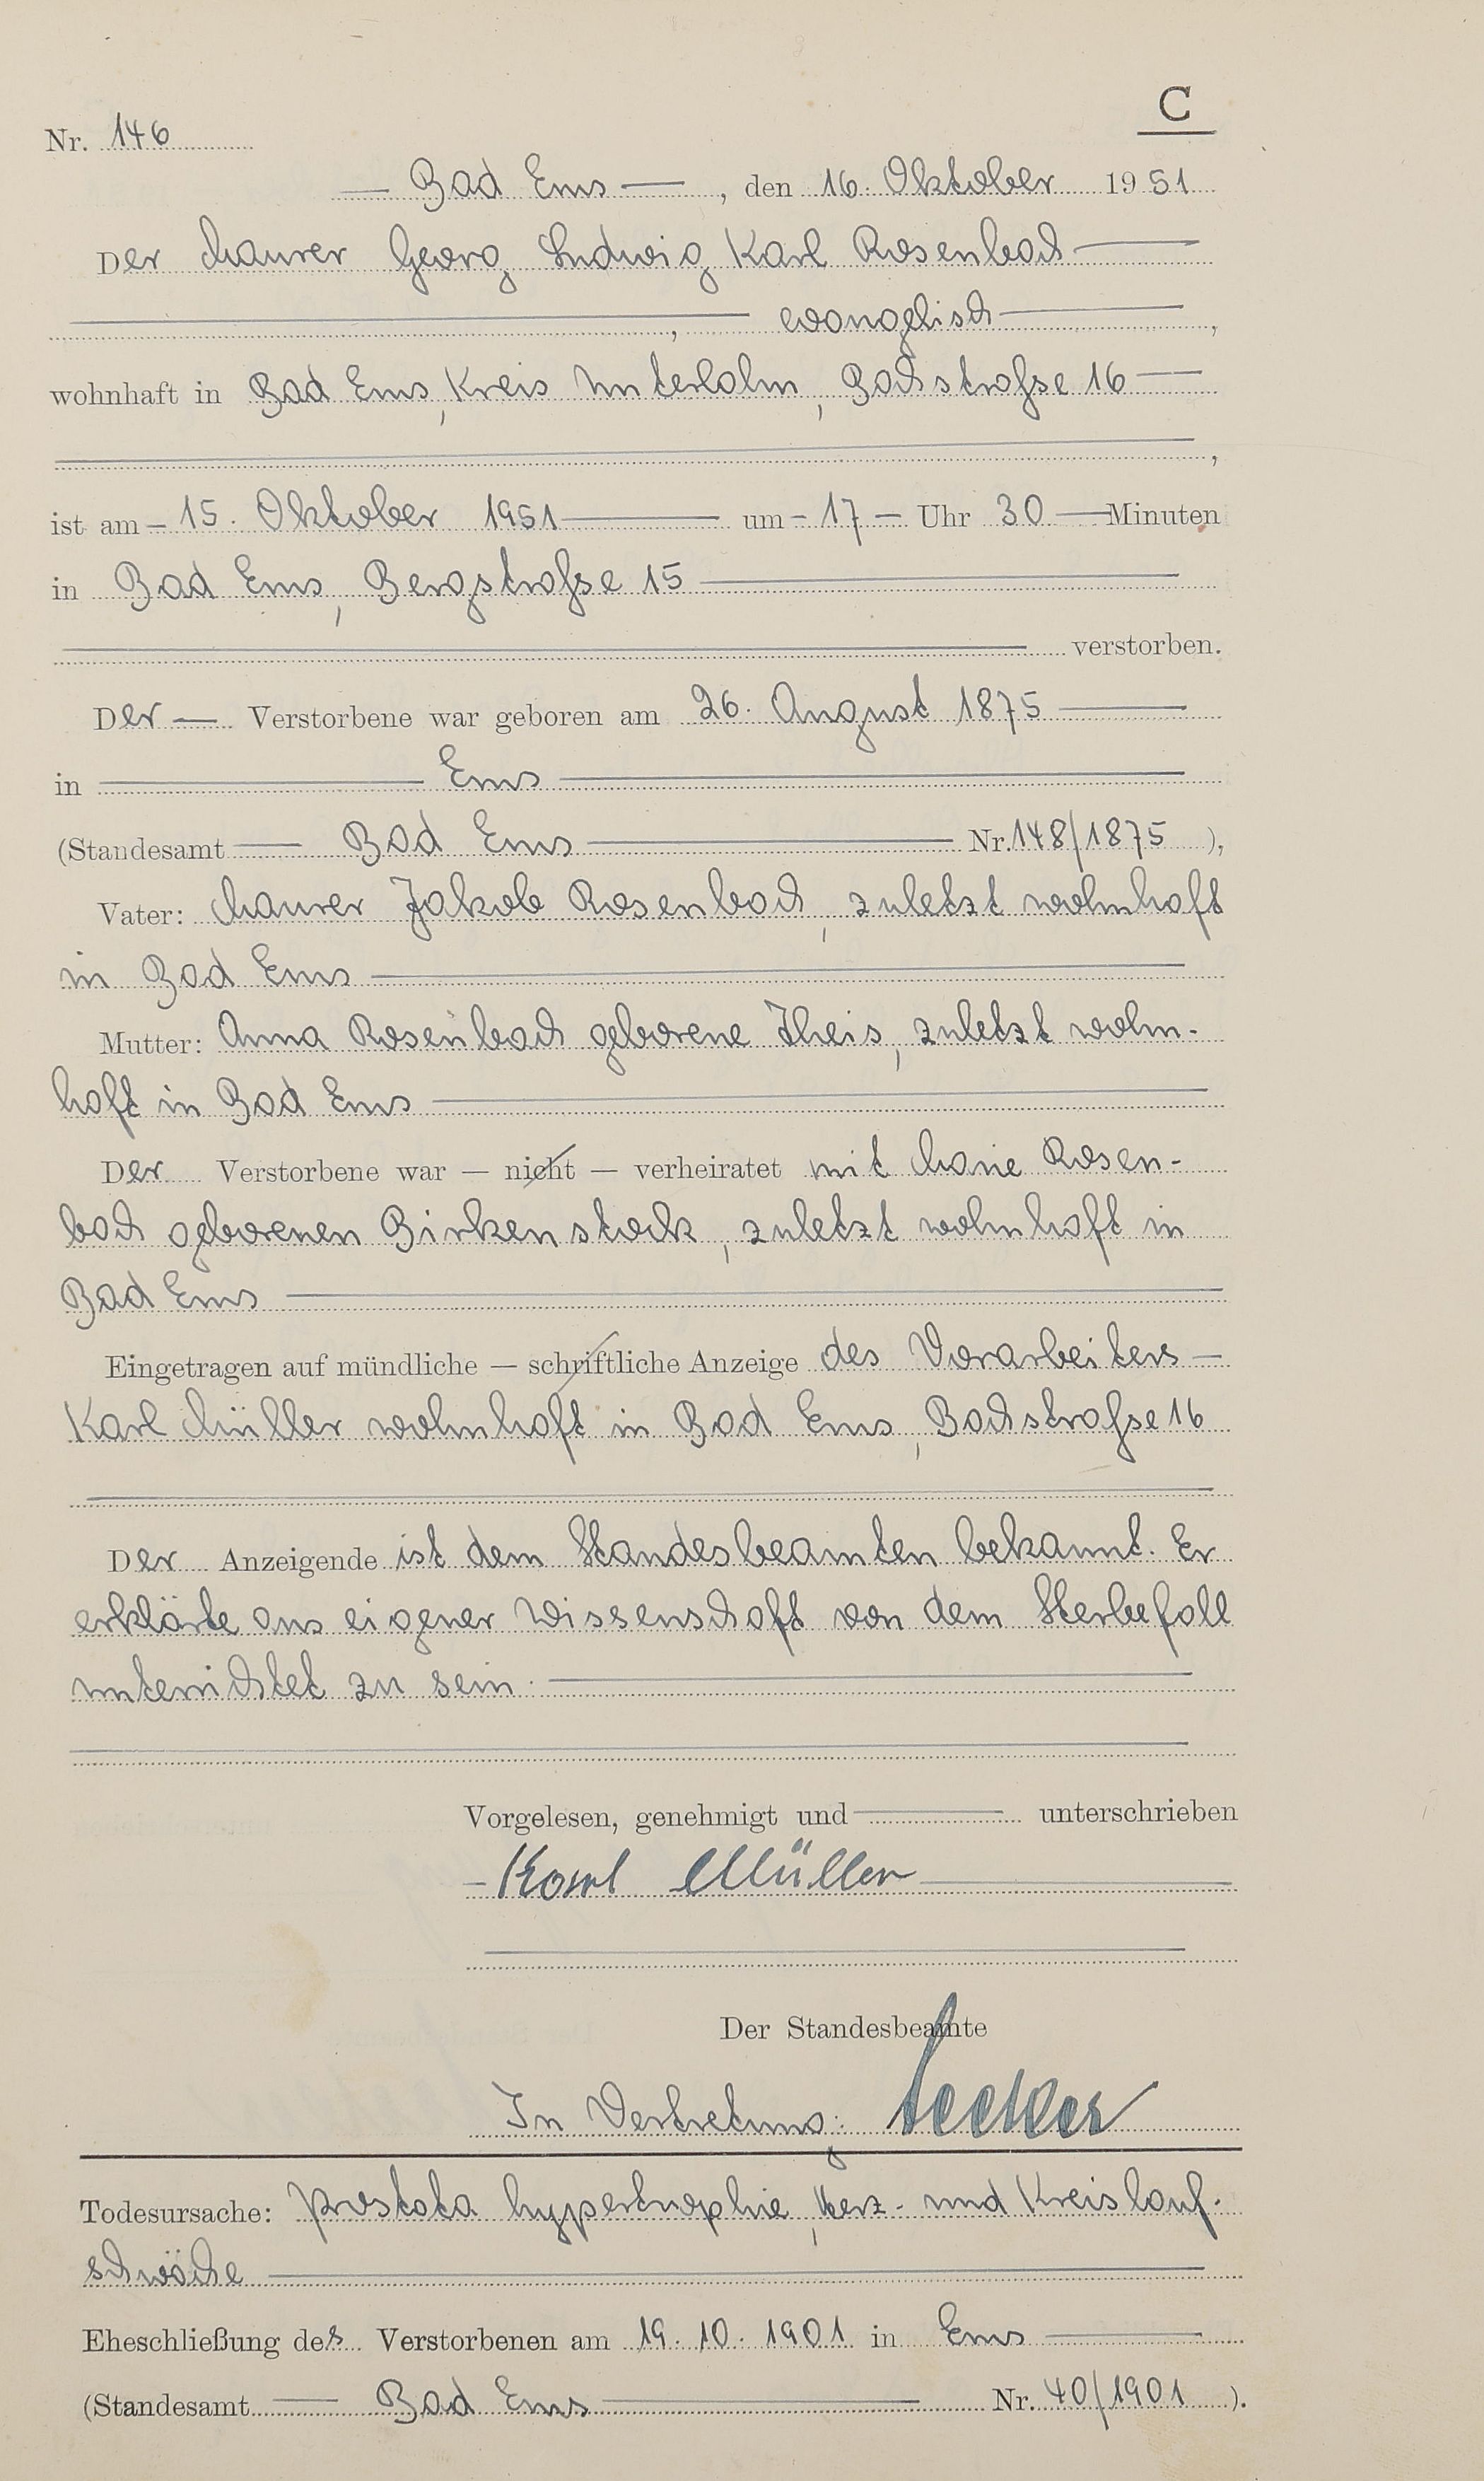 C
Nr. 146
— Bad Ems — , den 16. Oktober 1951
Der Maurer Georg Ludwig Karl Rosenbach —
— , — evangelisch — ,
wohnhaft in Bad Ems, Kreis Unterlahn, Bachstraße 16 —
— ,
ist am – 15. Oktober 1951 — um – 17 – Uhr 30 — Minuten
in Bad Ems, Bergstraße 15 —
— verstorben.
Der — Verstorbene war geboren am 26. August 1875 —
in — Ems —
(Standesamt — Bad Ems — Nr. 148/1875 ),
Vater: Maurer Jakob Rosenbach, zuletzt wohnhaft
in Bad Ems —
Mutter: Anna Rosenbach geborene Theis, zuletzt wohn-
haft in Bad Ems —
Der Verstorbene war — nicht — verheiratet mit Marie Rosen-
bach geborenen Birkenstock, zuletzt wohnhaft in
Bad Ems —
Eingetragen auf mündliche — schriftliche Anzeige des Vorarbeiters —
Karl Müller wohnhaft in Bad Ems, Bachstraße 16
Der Anzeigende ist dem Standesbeamten bekannt. Er
erklärte aus eigener Wissenschaft von dem Sterbefall
unterrichtet zu sein. —
Vorgelesen, genehmigt und — unterschrieben
– Karl Müller —
Der Standesbeamte
In Vertretung:
Todesursache: Prostata hypertrophie, Herz- und Kreislauf-
schwäche —
Eheschließung des Verstorbenen am 19. 10. 1901 in Ems —
(Standesamt — Bad Ems — Nr. 40/1901 ).